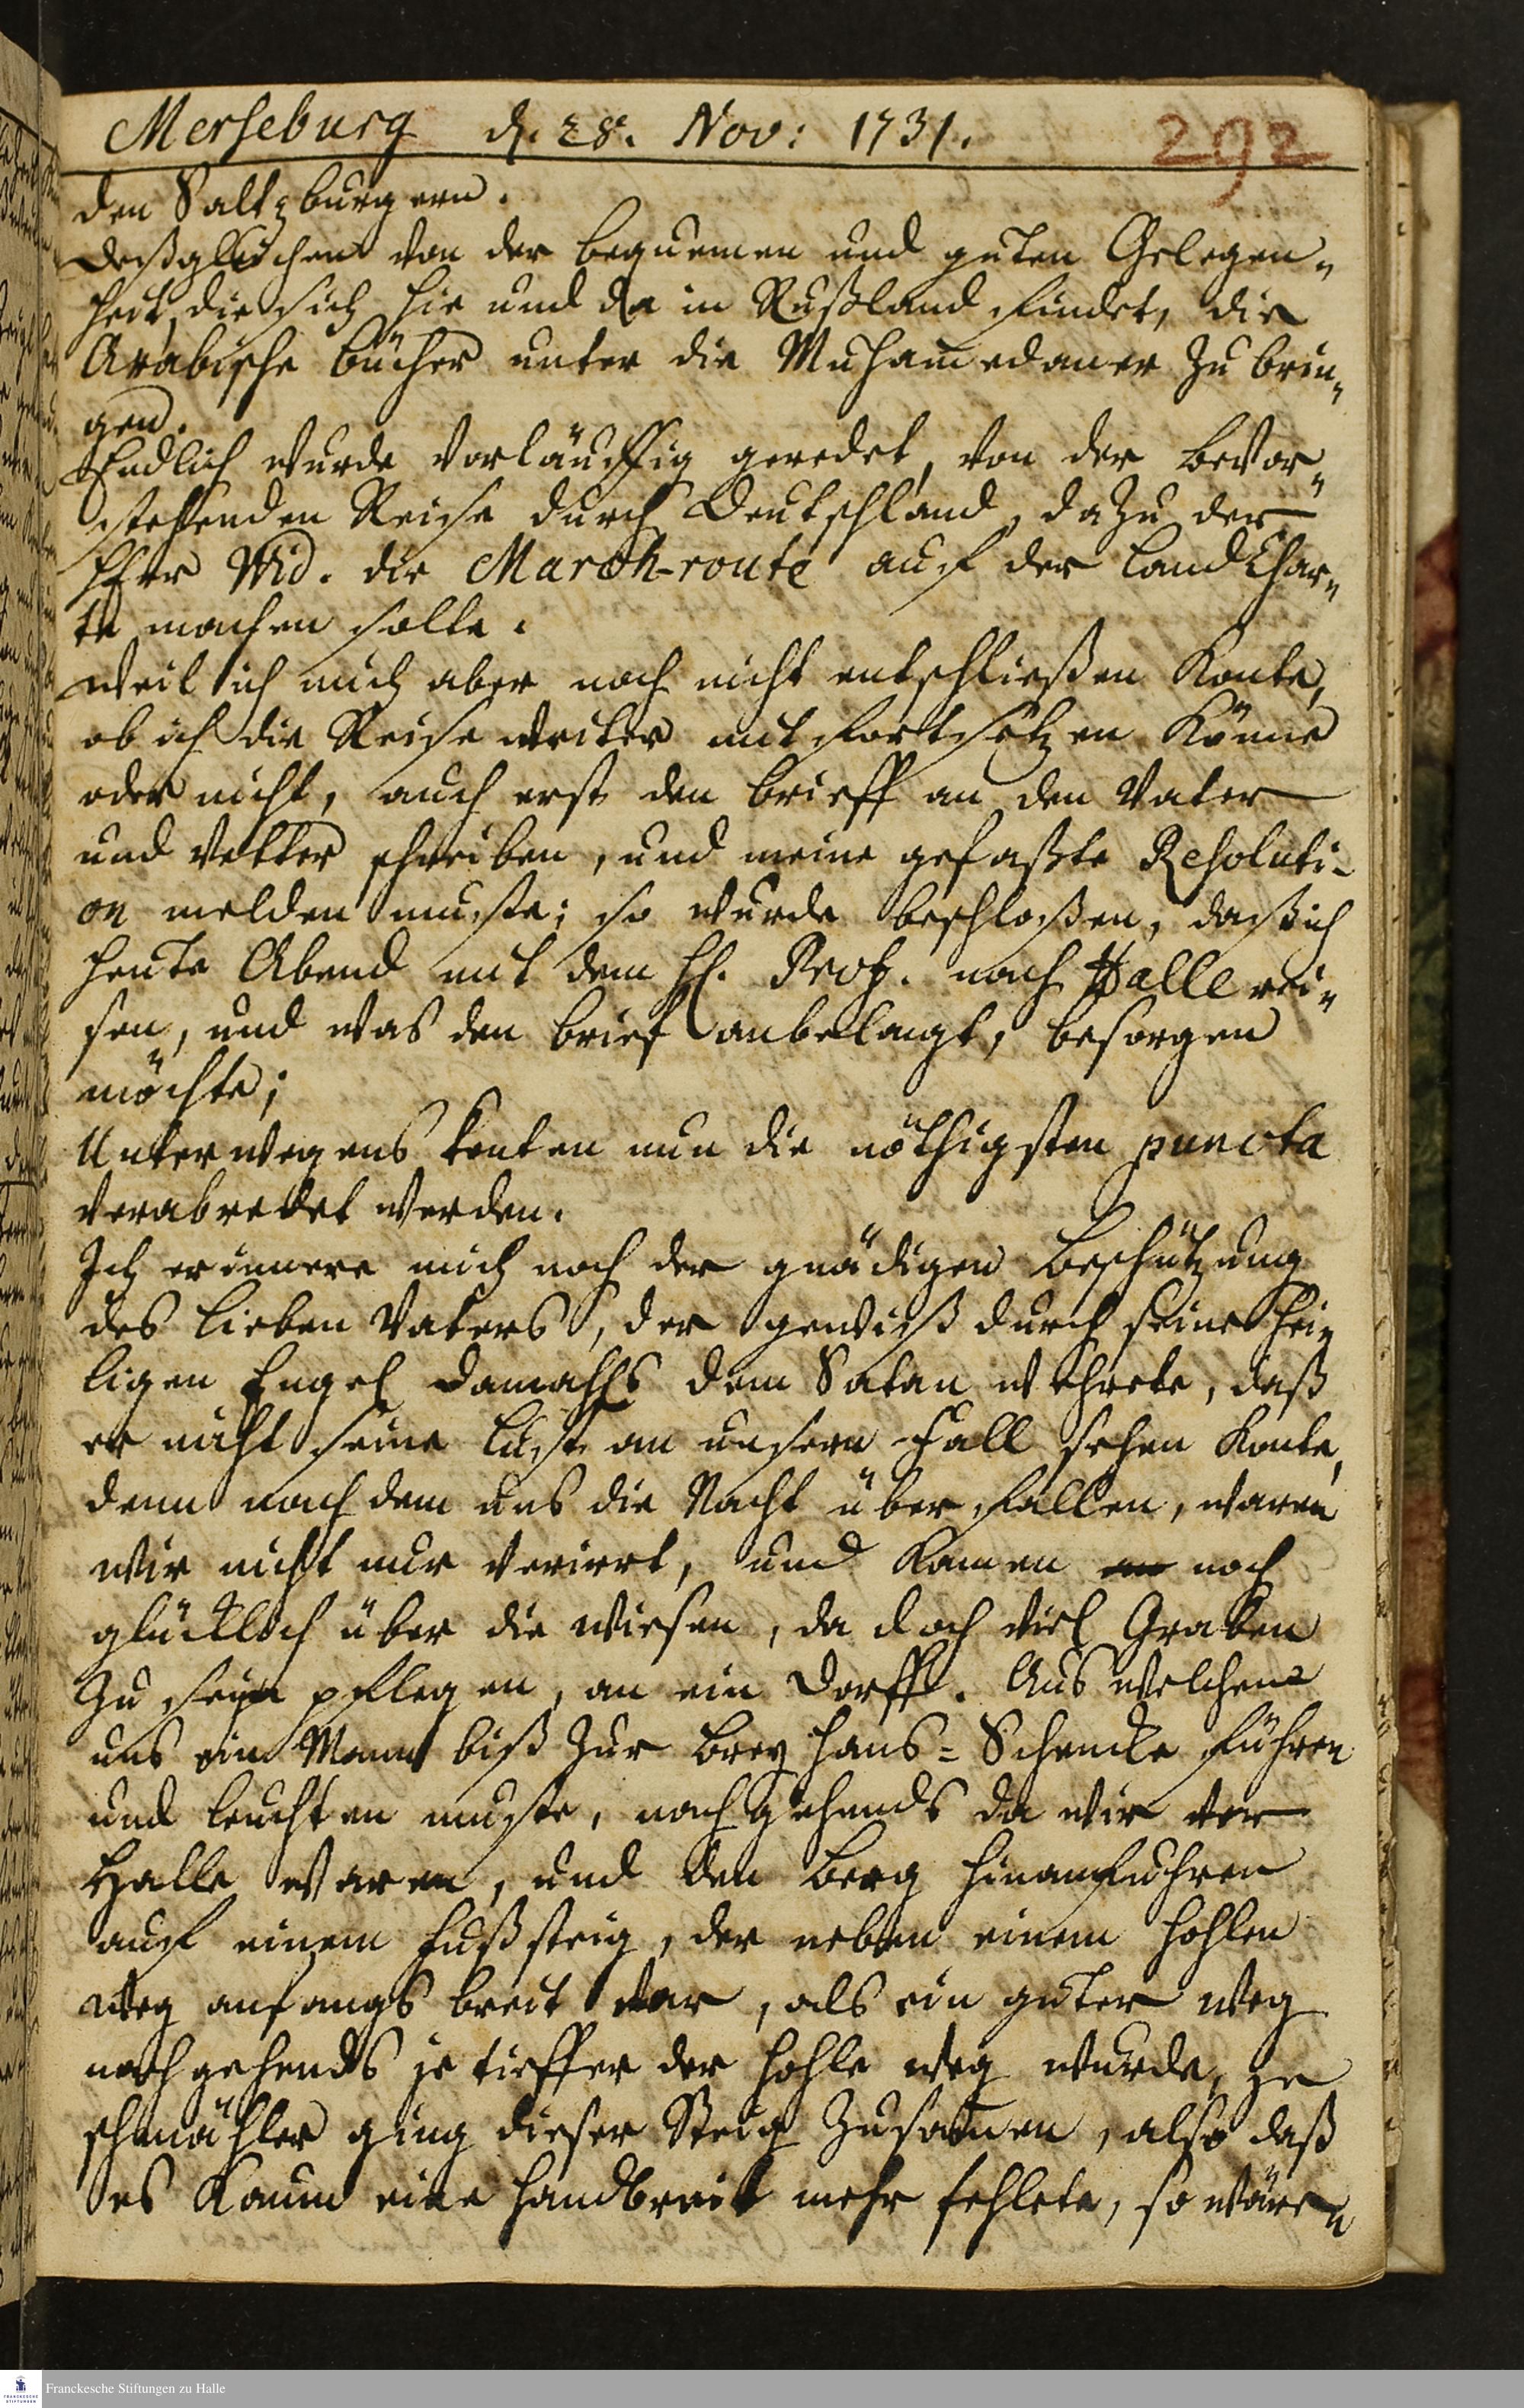 Merseburg d. 28. Nov: 1731.
292
den Saltzburgern.
Deßgleichen von der bequemen und guten Gelegen-
heit, die sich hie und da in Rußland findet, die
Arabische bücher unter die Muham̅edaner zu brin-
gen.
Endlich wurde vorläuffig geredet, von der bevor-
stehenden Reise durch Deutschland, dazu der
HErr Wid. die March-route auf der LandChar-
te machen solle.
Weil ich mich aber noch nicht entschließen konte,
ob ich die Reise weiter mit fortsetzen könne
oder nicht, auch erst den brieff an den Vater
und Vetter schreiben, und meine gefaßte Resoluti-
on melden muste; so wurde beschloßen, daß ich
heute Abend mit dem H. Prof. nach Halle rei-
sen, und was den brief anbelangt, besorgen
möchte;
Unterwegens konten nun die nöthigsten puncta
verabredet werden.
Ich erinnere mich noch der gnädigen Beschützung
des lieben Vaters, der gewiß durch seine hei-
ligen Engel damahls dem Satan wehrete, daß
er nicht seine Lust an unsern Fall sehen konte,
denn nach dem uns die Nacht überfallen, waren
wir nicht nur verirrt, und kamen noch
glücklich über die wiesen, da doch viel Graben
zu seyn pflegen, an ein Dorff. Aus welchem
uns ein Mann biß zur Brey hans-Schencke führen
und leuchten muste, nachgehends da wir vor
Halle waren, und den Berg hinanfuhren
auf einem Fußsteig, der neben einem hohlen
Weg anfangs breit war, als ein guter Weg
nachgehends je tieffer der hohle weg wurde, je
schmähler ging dieser Steig zusam̅en, also daß
es kaum eine handbreit mehr fehlete, so wären
Franckesche Stiftungen zu Halle